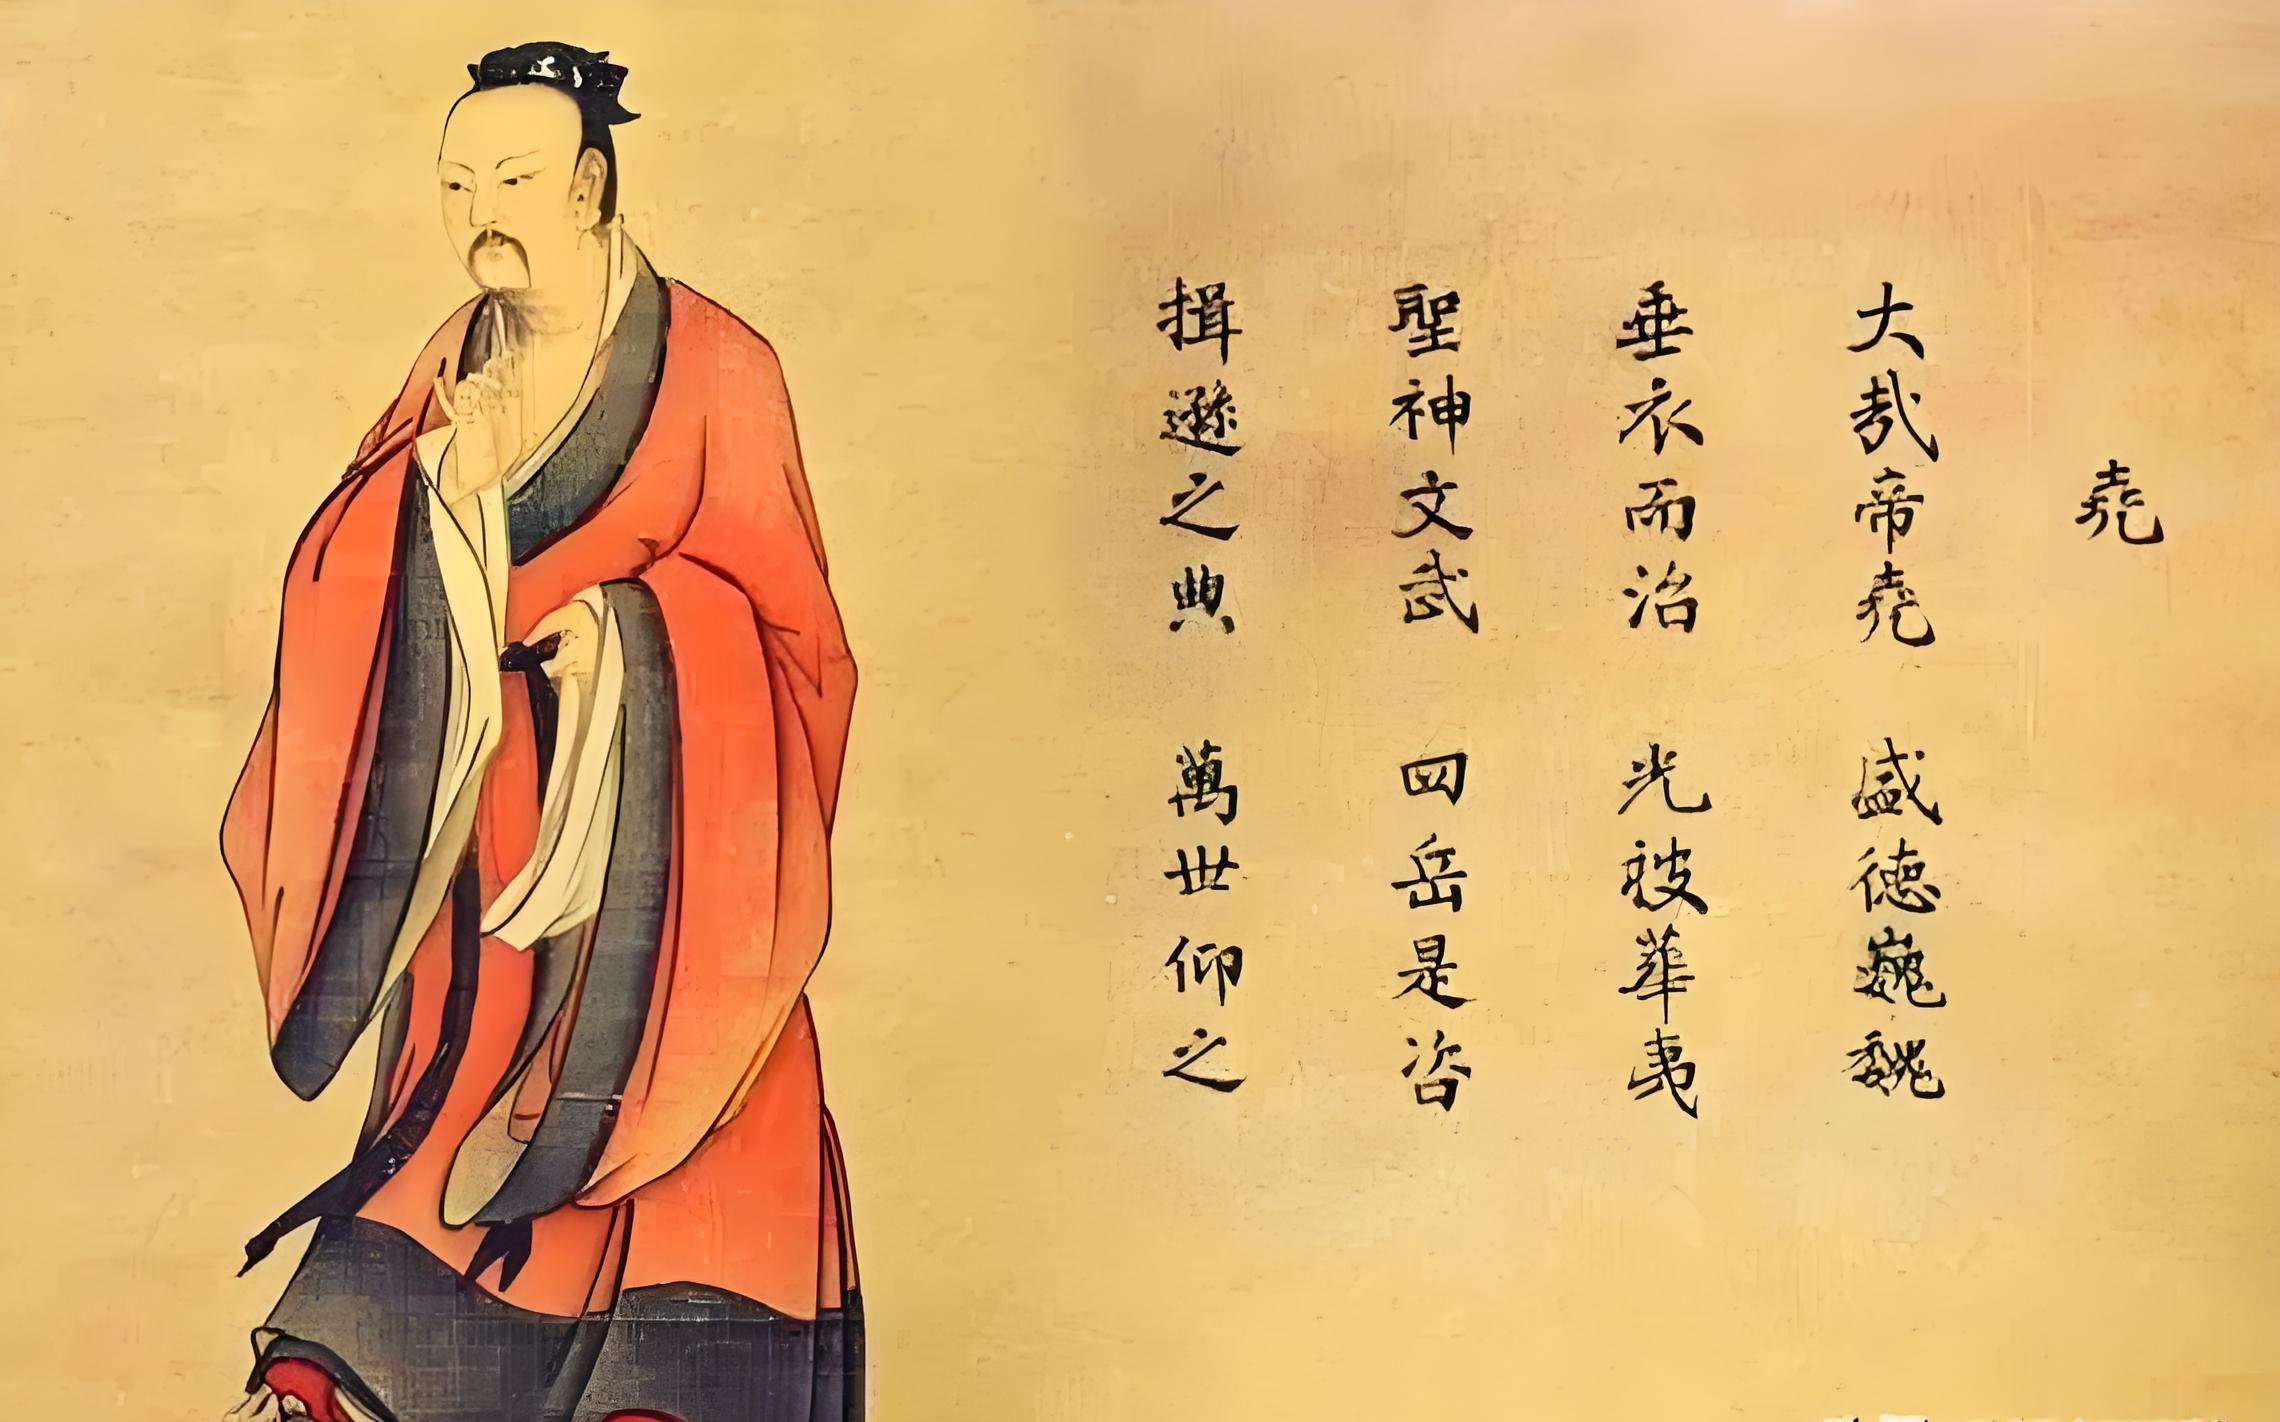 堯
大哉帝堯 盛德巍巍
垂衣而治 光被華夷
聖神文武 四岳是咨
揖遜之典 萬世仰之